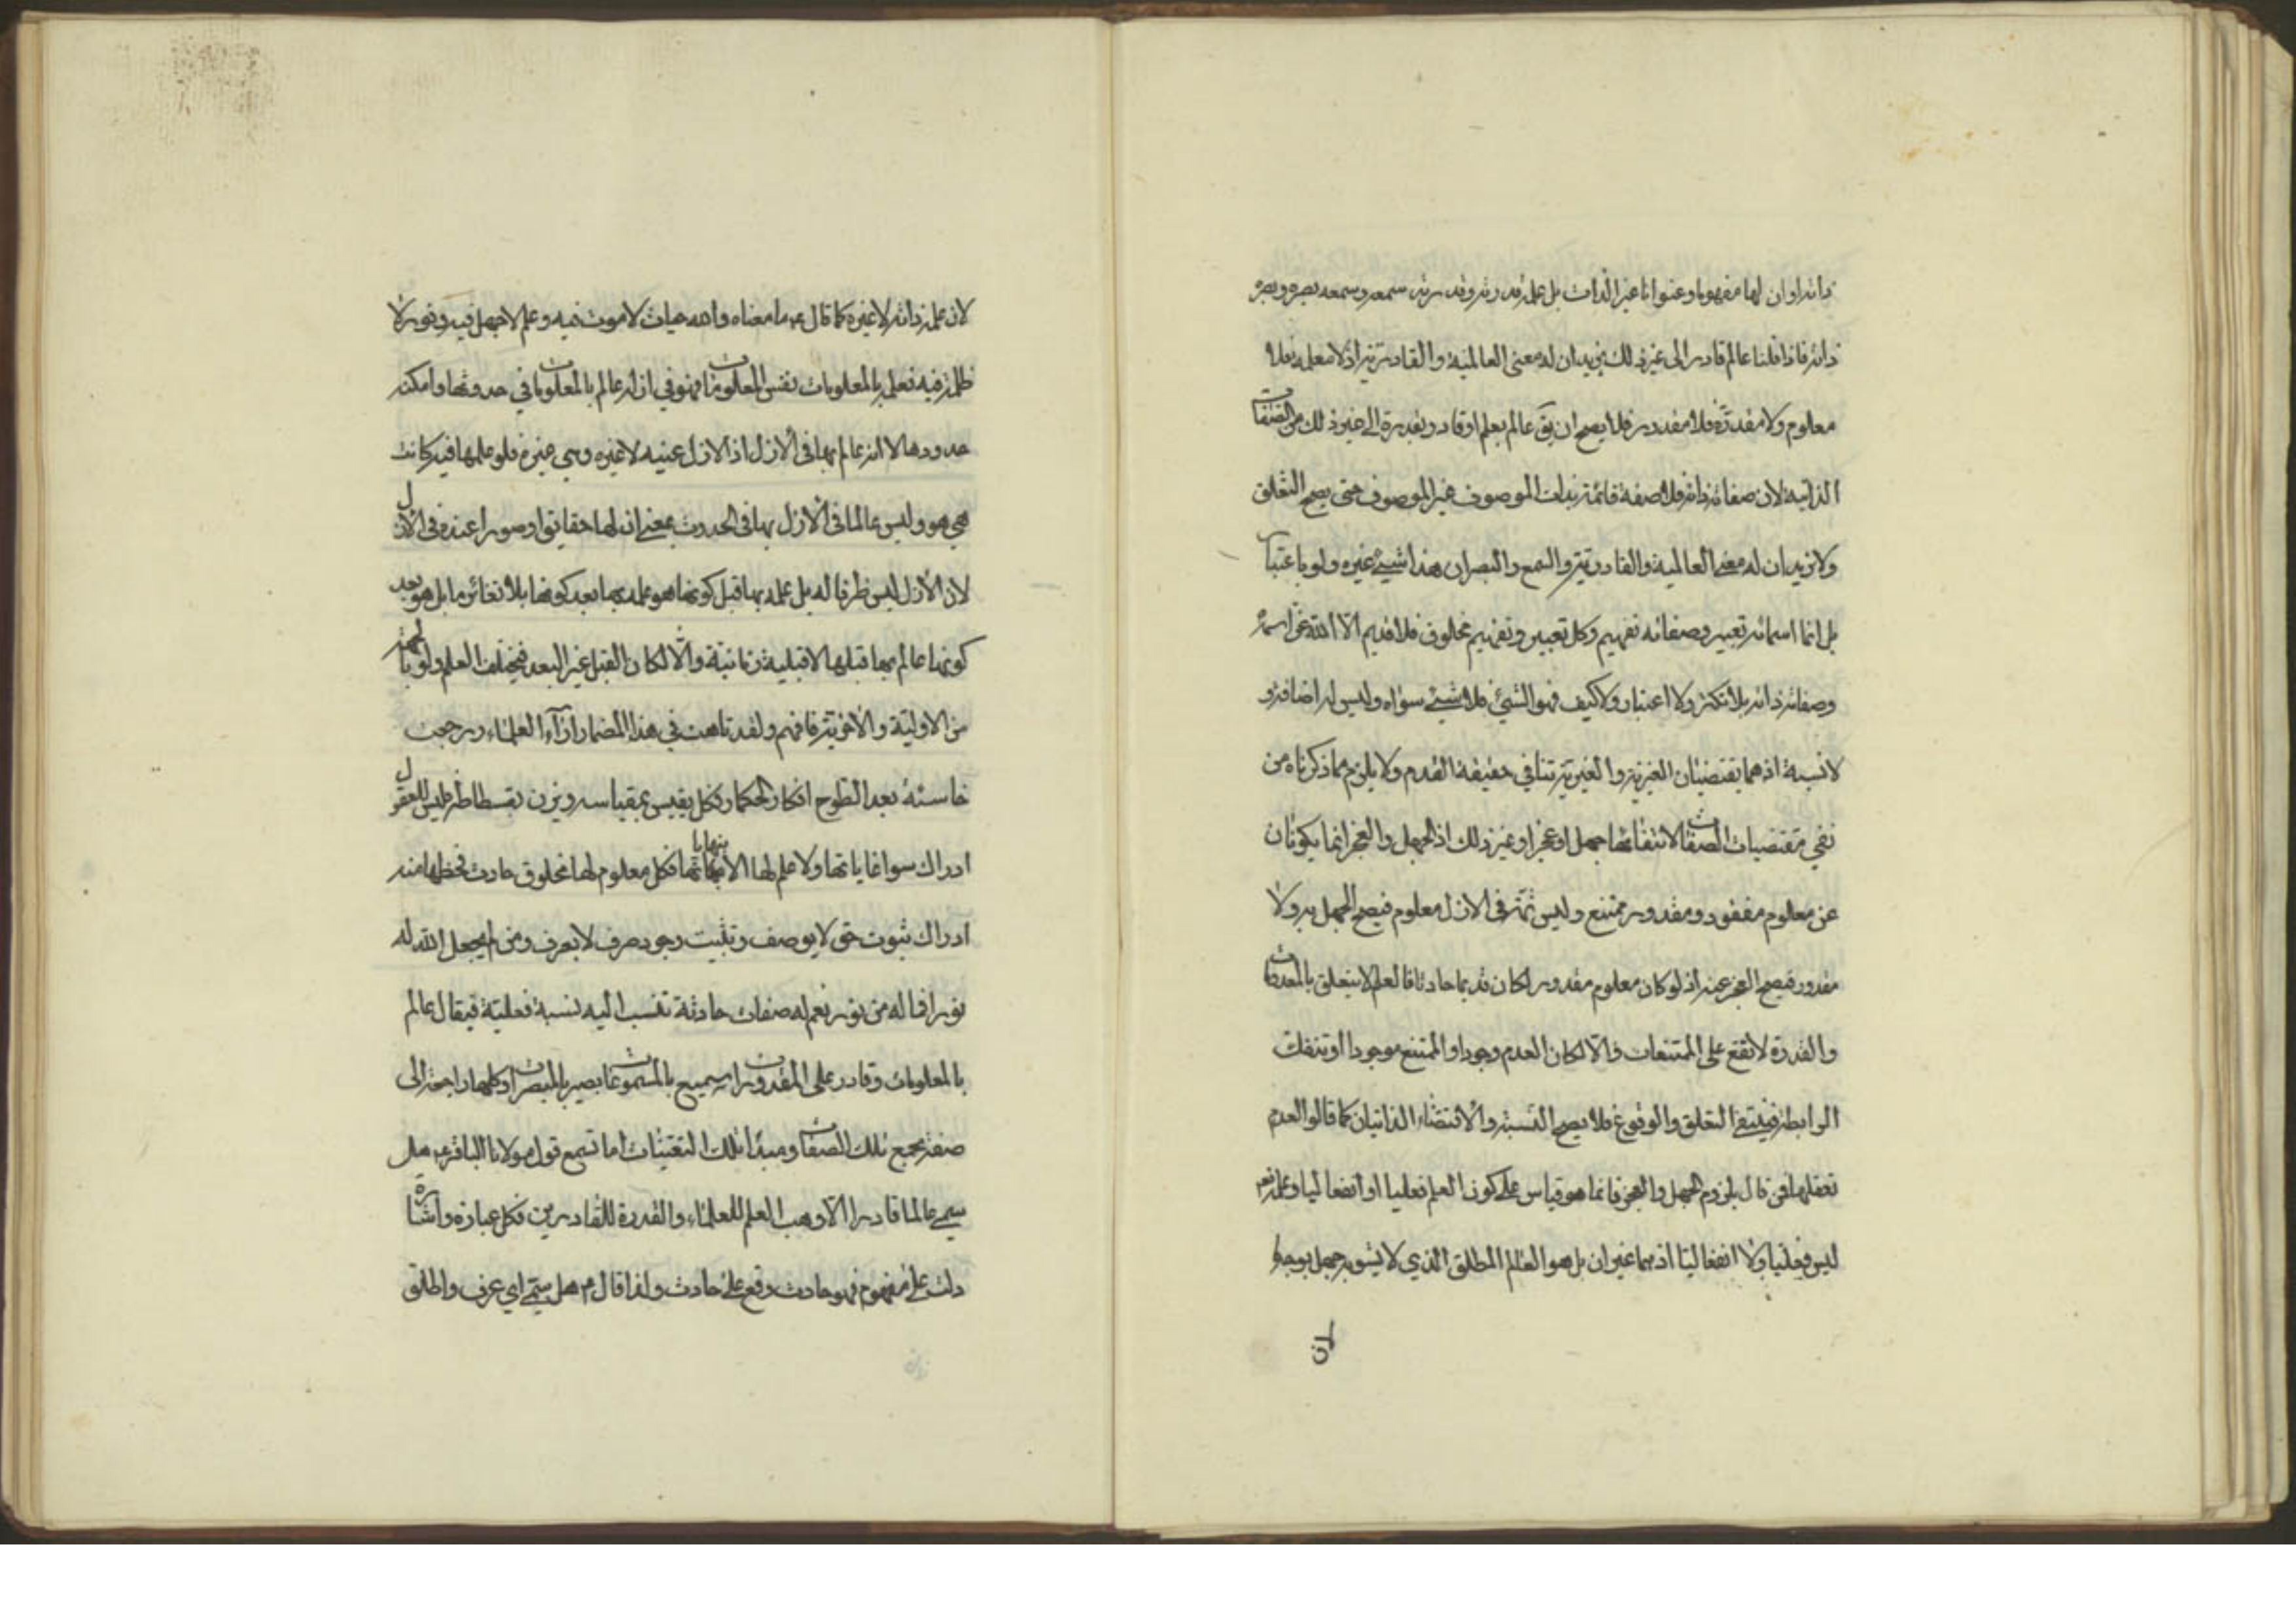 ذاته او ان لها مفهوما وعنوانا غير الذات بل علمه قدرته وقدرته سمعه وسمعه بصره وبصره
ذاته فاذا قلنا عالم قادر الى غير ذلك نريد ان له معنى العالمية والقادرية اذ لا معلم فلا
معلوم ولا مقدرة فلا مقدور فلا يصح ان يق عالم بعلم او قادر بقدرة الى غير ذلك من الصفات
الذاتية لان صفاته ذاته فلا صفة قائمة بذات الموصوف غير الموصوف حتى يصح التعلق
ولا نريد ان له معنى العالمية والقادرية والسمع والبصر ان هذا شيئ غيره ولو باعتبار
بل انما اسمائه تعبير وصفاته تفهيم وكل تعبير وتفهيم مخلوق فلا قديم الا الله عن اسمه
وصفاته ذاته بلا تكثر ولا اعتبار ولا كيف فهو الشيئ فلا شيئ سواه وليس له اضافة و
لا نسبة اذ هما يقتضيان الغيرية والغيرية تنافي حقيقة القدم ولا يلزم مما ذكرناه من
نفي مقتضيات الصفات لانتفائها جهل او عجز او غير ذلك اذ الجهل والعجز انما يكونان
عن معلوم مفقود ومقدور ممتنع وليس ثمة في الازل معلوم فيصح الجهل به ولا
مقدور فيصح العجز عنه اذ لو كان معلوم مقدور لكان قديما حادثا فالعلم لا يتعلق بالمعدومات
والقدرة لا تقع على الممتنعات والا لكان العدم وجودا والممتنع موجودا او تنفك
الرابطة فينتفى التعلق والوقوع فلا يصح النسبة والاقتضاء الذاتيان كما قالوا العدم
تعقلها فمن قال بلزوم الجهل والعجز فانما هو قياس على كون العلم فعليا او انفعاليا وعلمه تعم
ليس فعليا ولا انفعاليا اذ هما غيران بل هو العالم المطلق الذي لا يشوبه جهل بوجه
لان
لان علمه ذاته لا غيره كما قال ع ما معناه والله حيات لا موت فيه وعلم لا جهل فيه ونور لا
ظلمة فيه فعلمه بالمعلومات نفس المعلومات فهو في ازله عالم بالمعلومات في حدوثها وامكنة
حدودها لا انه عالم بها في الازل اذ الازل عينه لا غيره وهي غيره فلو علمها فيه كانت
هي هو وليس عالما في الازل بها في الحدوث بمعنى ان لها حقايق او صورا عنده في الازل
لان الازل ليس ظرفا له بل علمه بها قبل كونها هو علمه بها بعد كونها بلا تغائر ما بل هو بعد
كونها عالم بها قبلها لا قبلية زمانية والا لكان القبل غير البعد فيختلف العلم ولو بالجهة
من الاولية والاخرية فافهم ولقد تاهت في هذا المضمار آراء العلماء ورجعت
خاسئة بعد الطوح افكار الحكماء فكل يقيس بمقياسه ويزن بقسطاطه فليس للعقول
ادراك سوا غاياتها ولا علم لها الا بنهاياتها فكل معلوم لها مخلوق حادث فحظها منه
ادراك ثبوت حتى لا يوصف وتثبيت وجود صرف لا يعرف ومن لم يجعل الله له
نورا فما له من نور نعم له صفات حادثة تنسب اليه نسبة فعلية فيقال عالم
بالمعلومات وقادر على المقدورات سميع بالمسموعات بصير بالمبصرات وكلها راجعة الى
صفة تجمع تلك الصفات ومبدأ تلك التعينات اما تسمع قول مولانا الباقر ع هل
سمي عالما قادرا الا وهب العلم للعلماء والقدرة للقادرين فكل عبارة واشارة
دلت على مفهوم فهو حادث وقع على حادث ولذا قال م هل سمي اي عرف واطلق